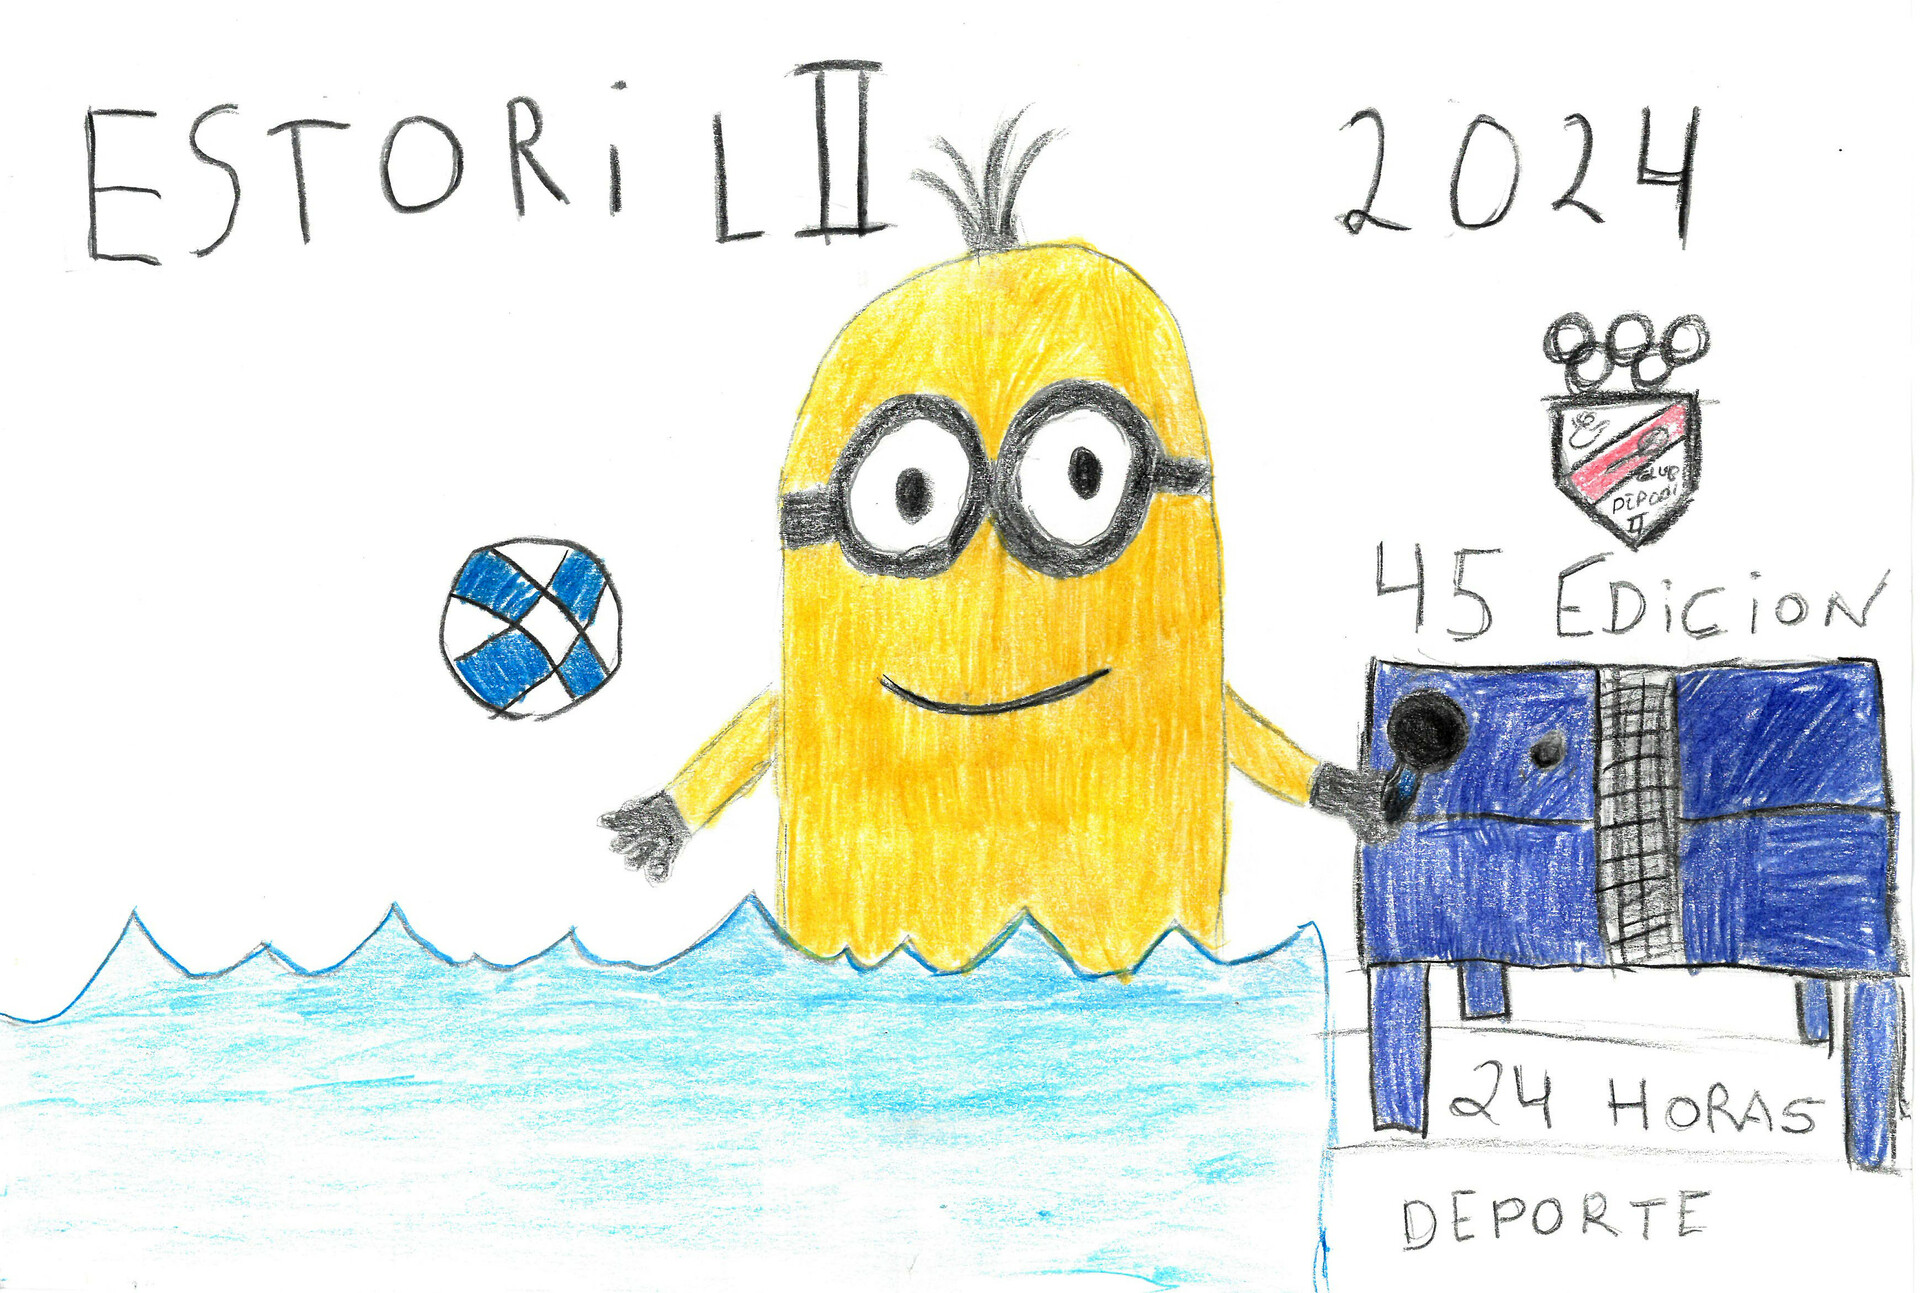 ESTORiL II 2024
CLUB
II
45 EDiCiON
24 HORAS
DEPORTE